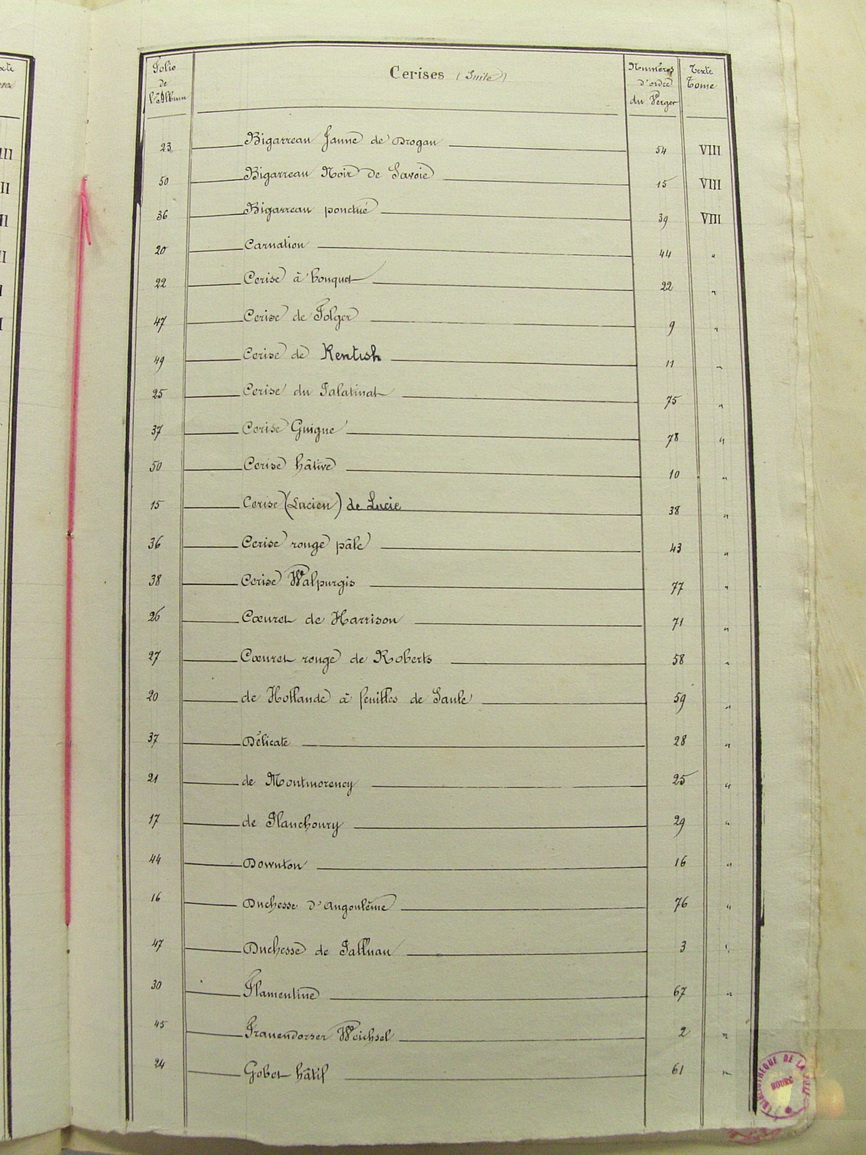 Folio de l'Album Cerises (Suite) Numéros d'ordre du Verger Texte Tome
23 Bigarreau Jaune de Drogan 54 VIII
50 Bigarreau Noir de Savoie 15 VIII
36 Bigarreau ponctué 39 VIII
20 Carnation 44 "
22 Cerise à bouquet 22 "
47 Cerise de Folger 9 "
49 Cerise de Kentish 11 "
25 Cerise du Palatinat 75 "
37 Cerise Guigne 78 "
50 Cerise hâtive 10 "
15 Cerise (Lucien) de Lucie 38 "
36 Cerise rouge pâle 43 "
38 Cerise Walpurgis 77 "
26 Cœuret de Harrison 71 "
27 Cœuret rouge de Roberts 58 "
20 de Hollande à feuilles de Saule 59 "
37 Délicate 28 "
21 de Montmorency 25 "
17 de Planchoury 29 "
44 Downton 16 "
16 Duchesse d'Angoulême 76 "
47 Duchesse de Palluau 3 "
30 Flamentine 67 "
45 Frauendorfer Weichsel 2 "
24 Gobet hâtif 61 "
BIBLIOTHÈQUE DE LA VILLE
BOURG